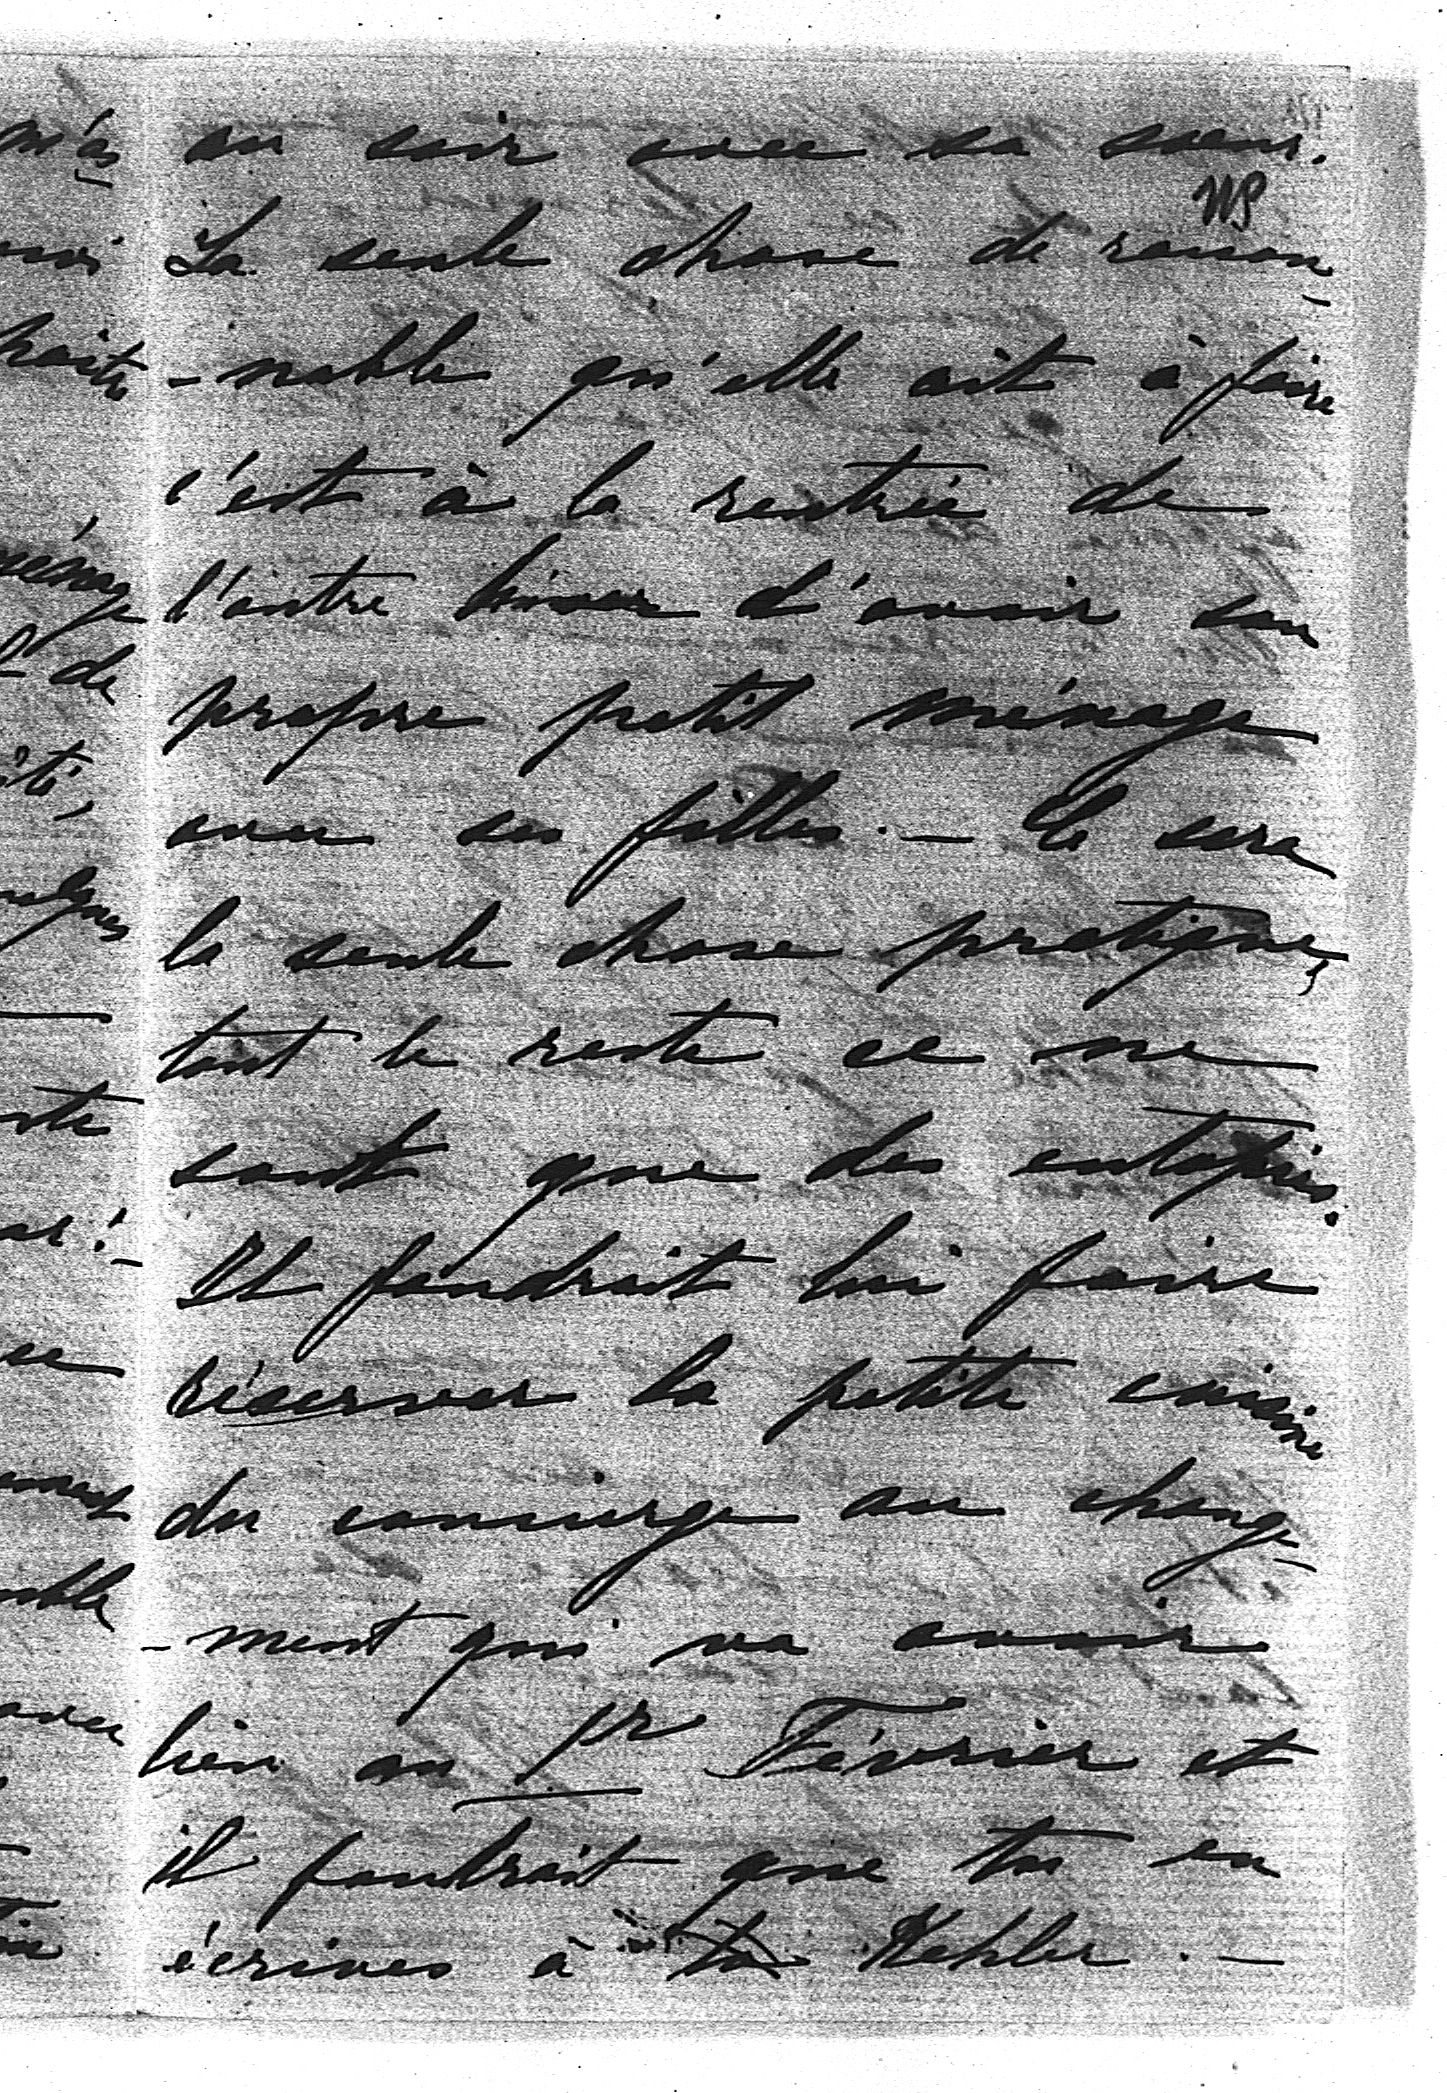 au soir avec sa soeur.
La seule chose de raison-
-nable qu'elle ait à faire
c'est à la rentrée de
l'autre hiver d'avoir son
propre petit ménage
avec ses filles. — Ce sera
la seule chose pratique,
tout le reste ce ne
sont que des utopies.
Il faudrait lui faire
réserver la petite cuisine
du concierge au change-
-ment qui va avoir
lieu au 1er Février et
il faudrait que tu en
écrives à Kehler. —